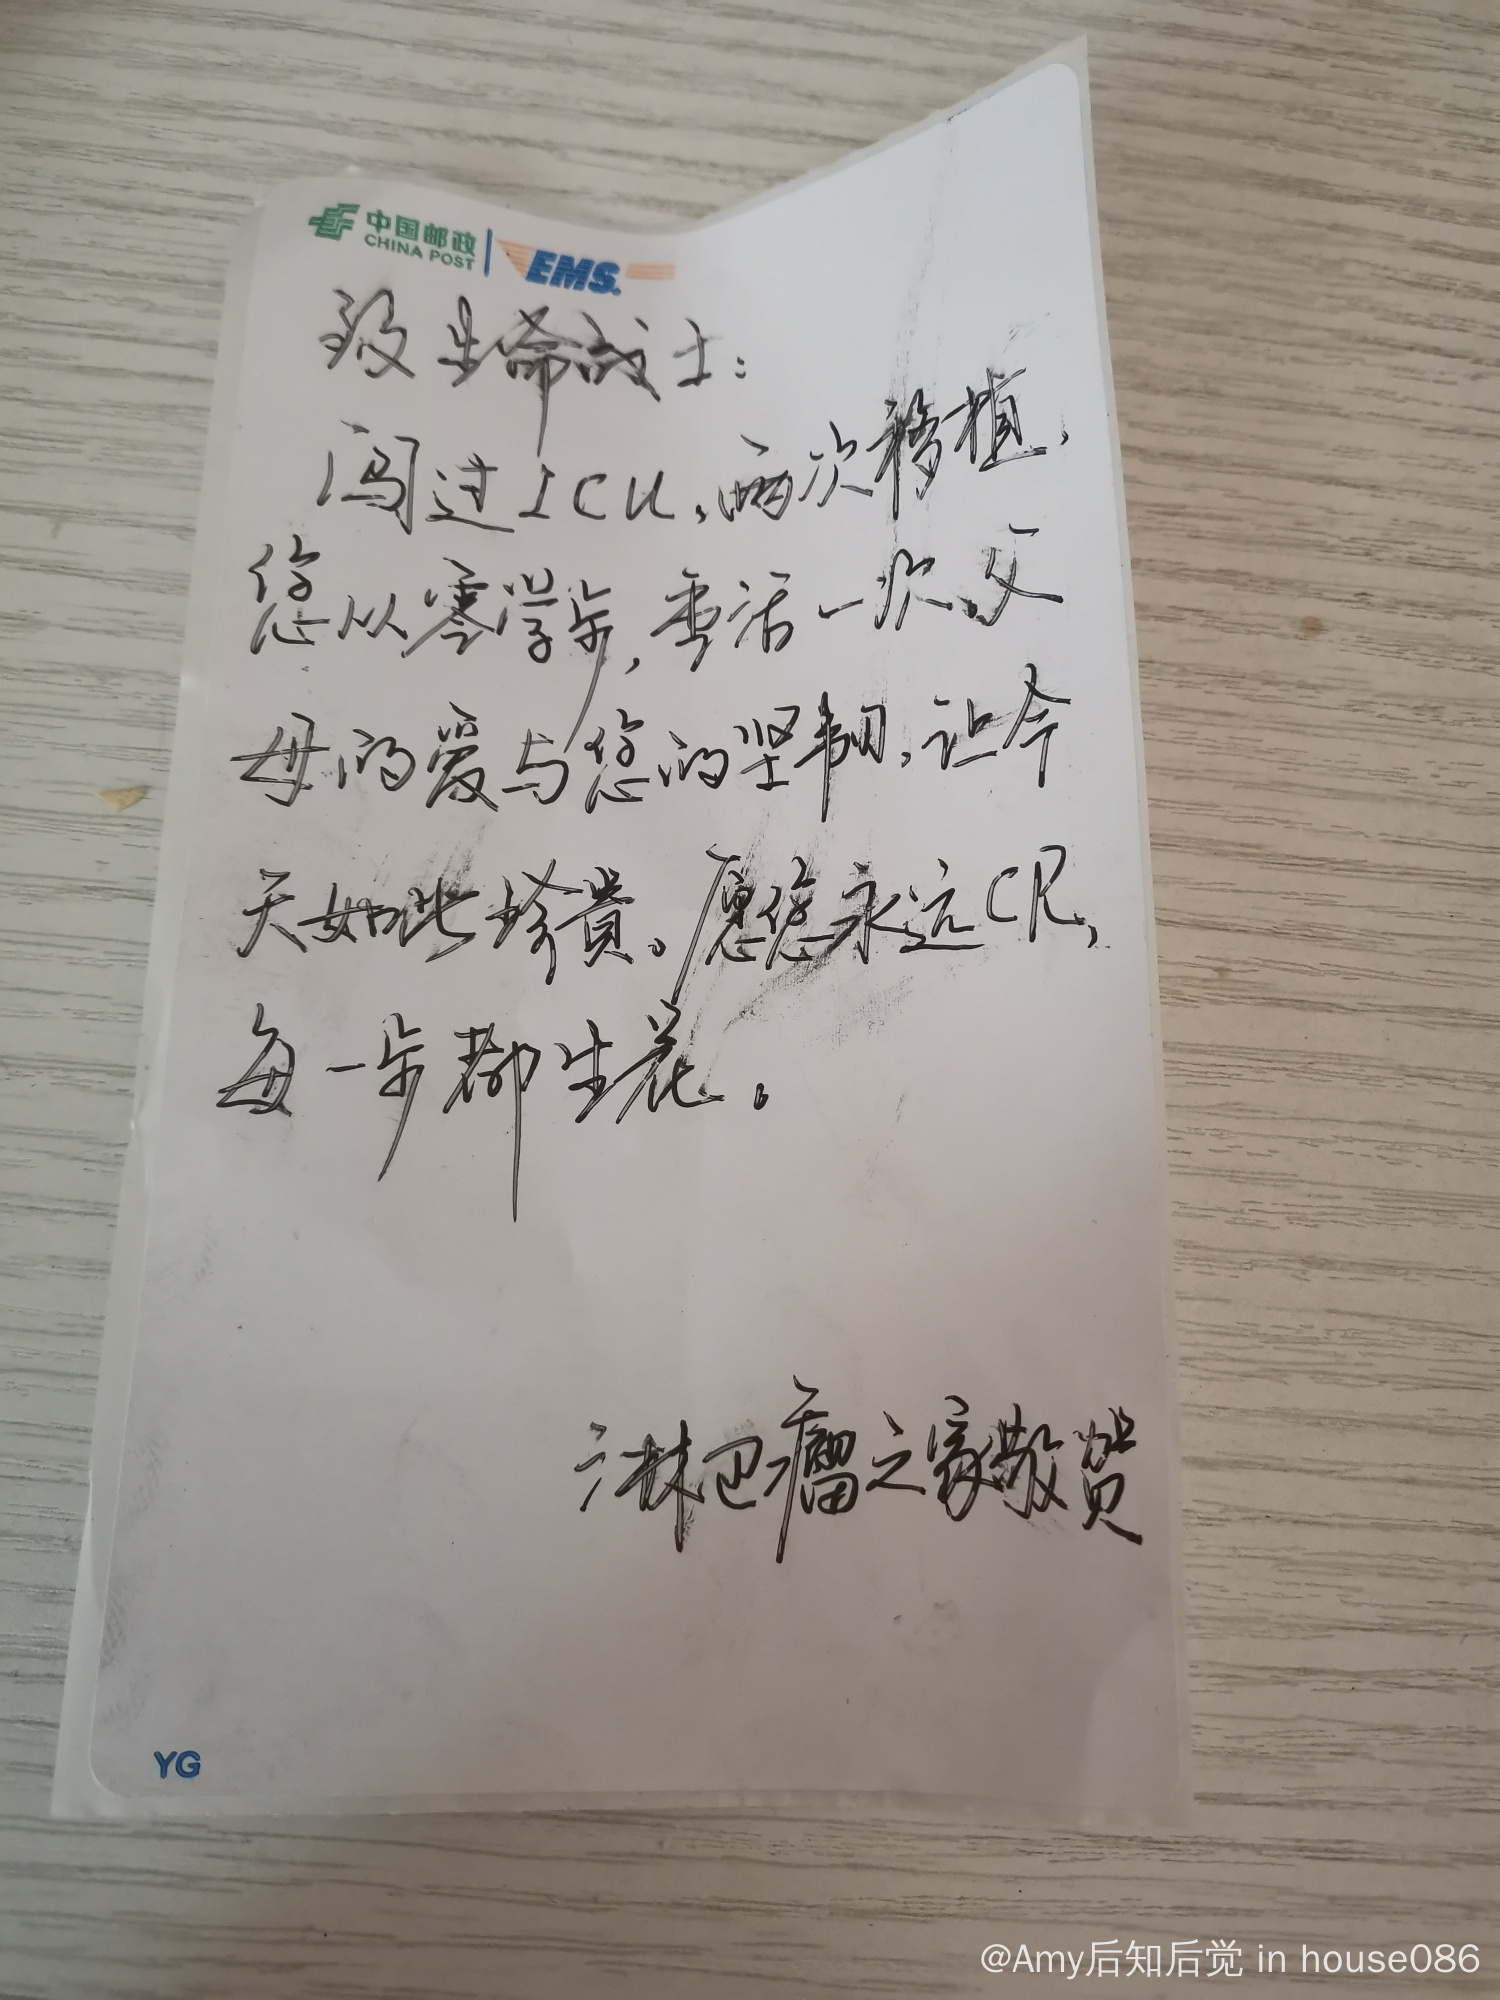 中国邮政
CHINA POST
EMS
致生命战士：
闯过ICU，两次移植，
您从零学步，重活一次。父
母的爱与您的坚韧，让今
天如此珍贵。愿您永远CR，
每一步都生花。
淋巴瘤之家敬贺
YG
@Amy后知后觉 in house086